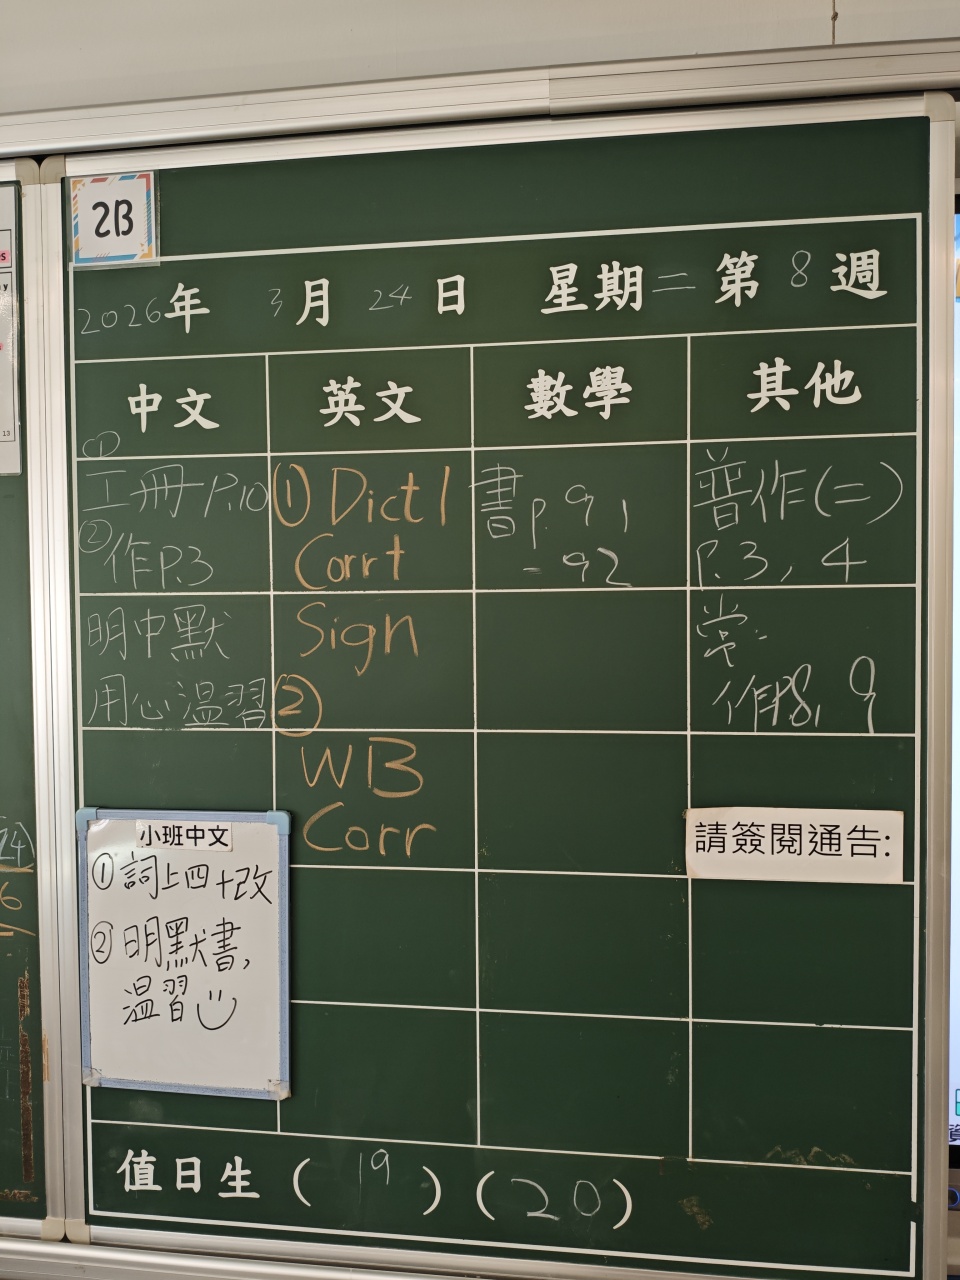 2B
2026年 3月 24日 星期二 第8週
中文
英文
數學
其他
①
工冊 P.10
②作P.3
明中默
用心溫習
① Dict 1
Corr+
Sign
②
WB
Corr
書p.91
-92
普作(二)
P.3, 4
常.
作P.8, 9
小班中文
① 詞上四+改
② 明默書,
溫習
請簽閱通告:
值日生 ( 19 ) ( 20 )